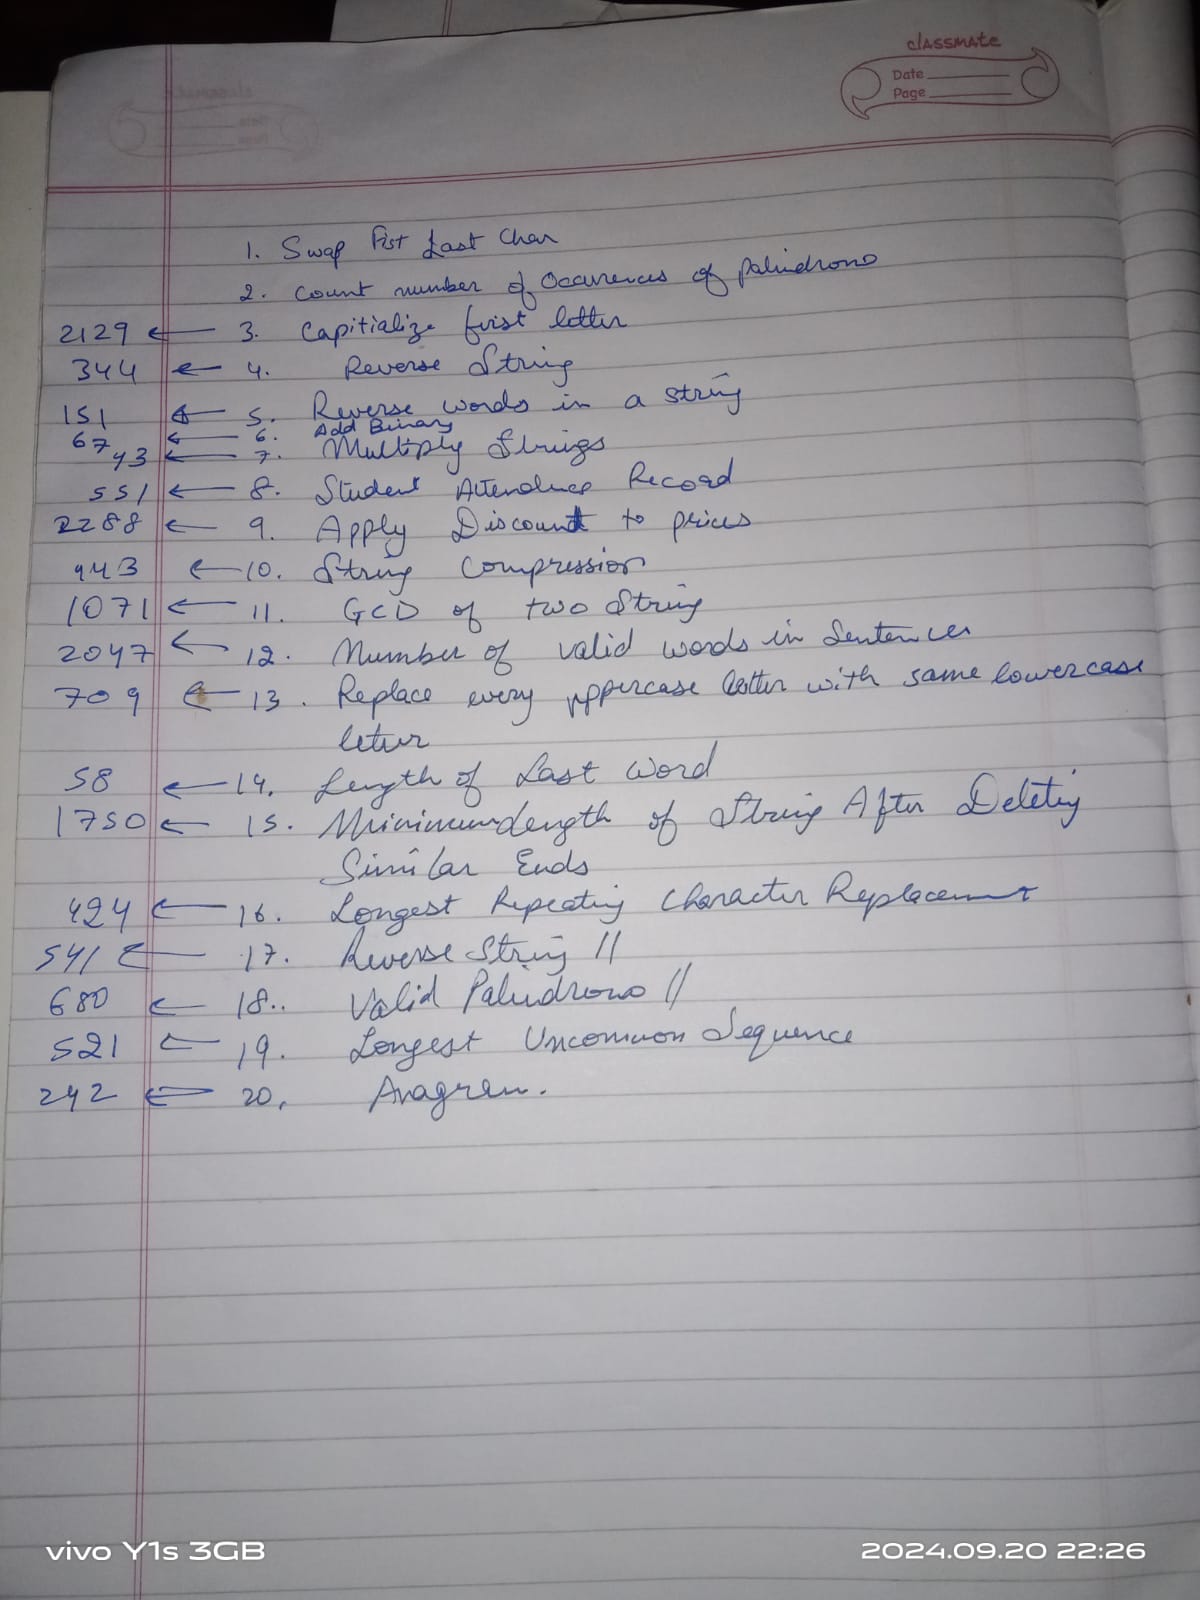 classmate
Date
Page
1. Swap Fist Last Char
2. Count number of Occurences of palindrome
2129 ← 3. Capitialize first letter
344 ← 4. Reverse String
151 ← 5. Reverse words in a string
67 ← 6. Add Binary
43 ← 7. Multiply Strings
551 ← 8. Student Attendence Record
2288 ← 9. Apply Discount to prices
443 ← 10. String Compression
1071 ← 11. GCD of two String
2047 ← 12. Number of valid words in Sentences
709 ← 13. Replace every uppercase letter with same lowercase
letter
58 ← 14. Length of Last Word
1750 ← 15. Minimum Length of String After Deleting
Similar Ends
424 ← 16. Longest Repeating Character Replacement
541 ← 17. Reverse String II
680 ← 18.. Valid Palindrome II
521 ← 19. Longest Uncommon Sequence
242 ← 20. Anagram.
vivo Y1s 3GB
2024.09.20 22:26